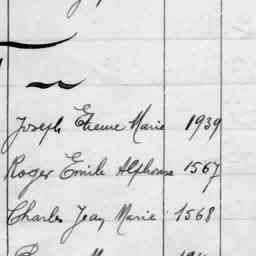 Joseph Etienne Marie 1939
Roger Emile Alphonse 1567
Charles Jean Marie 1568